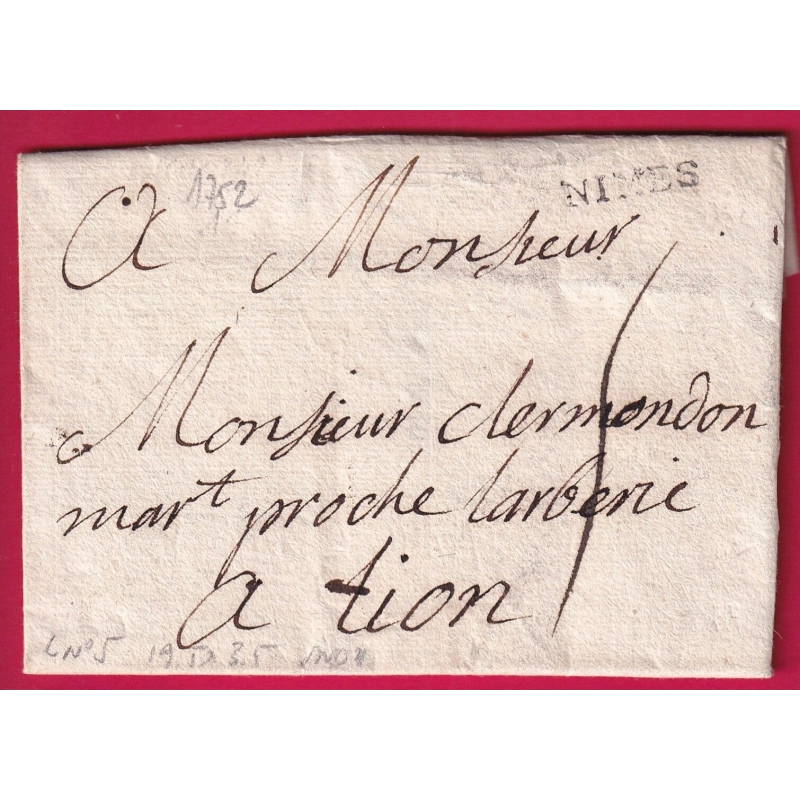 1752
NIMES
A Monsieur
Monsieur clermondon
mar^t proche larberie
a lion
L N°5 19 35